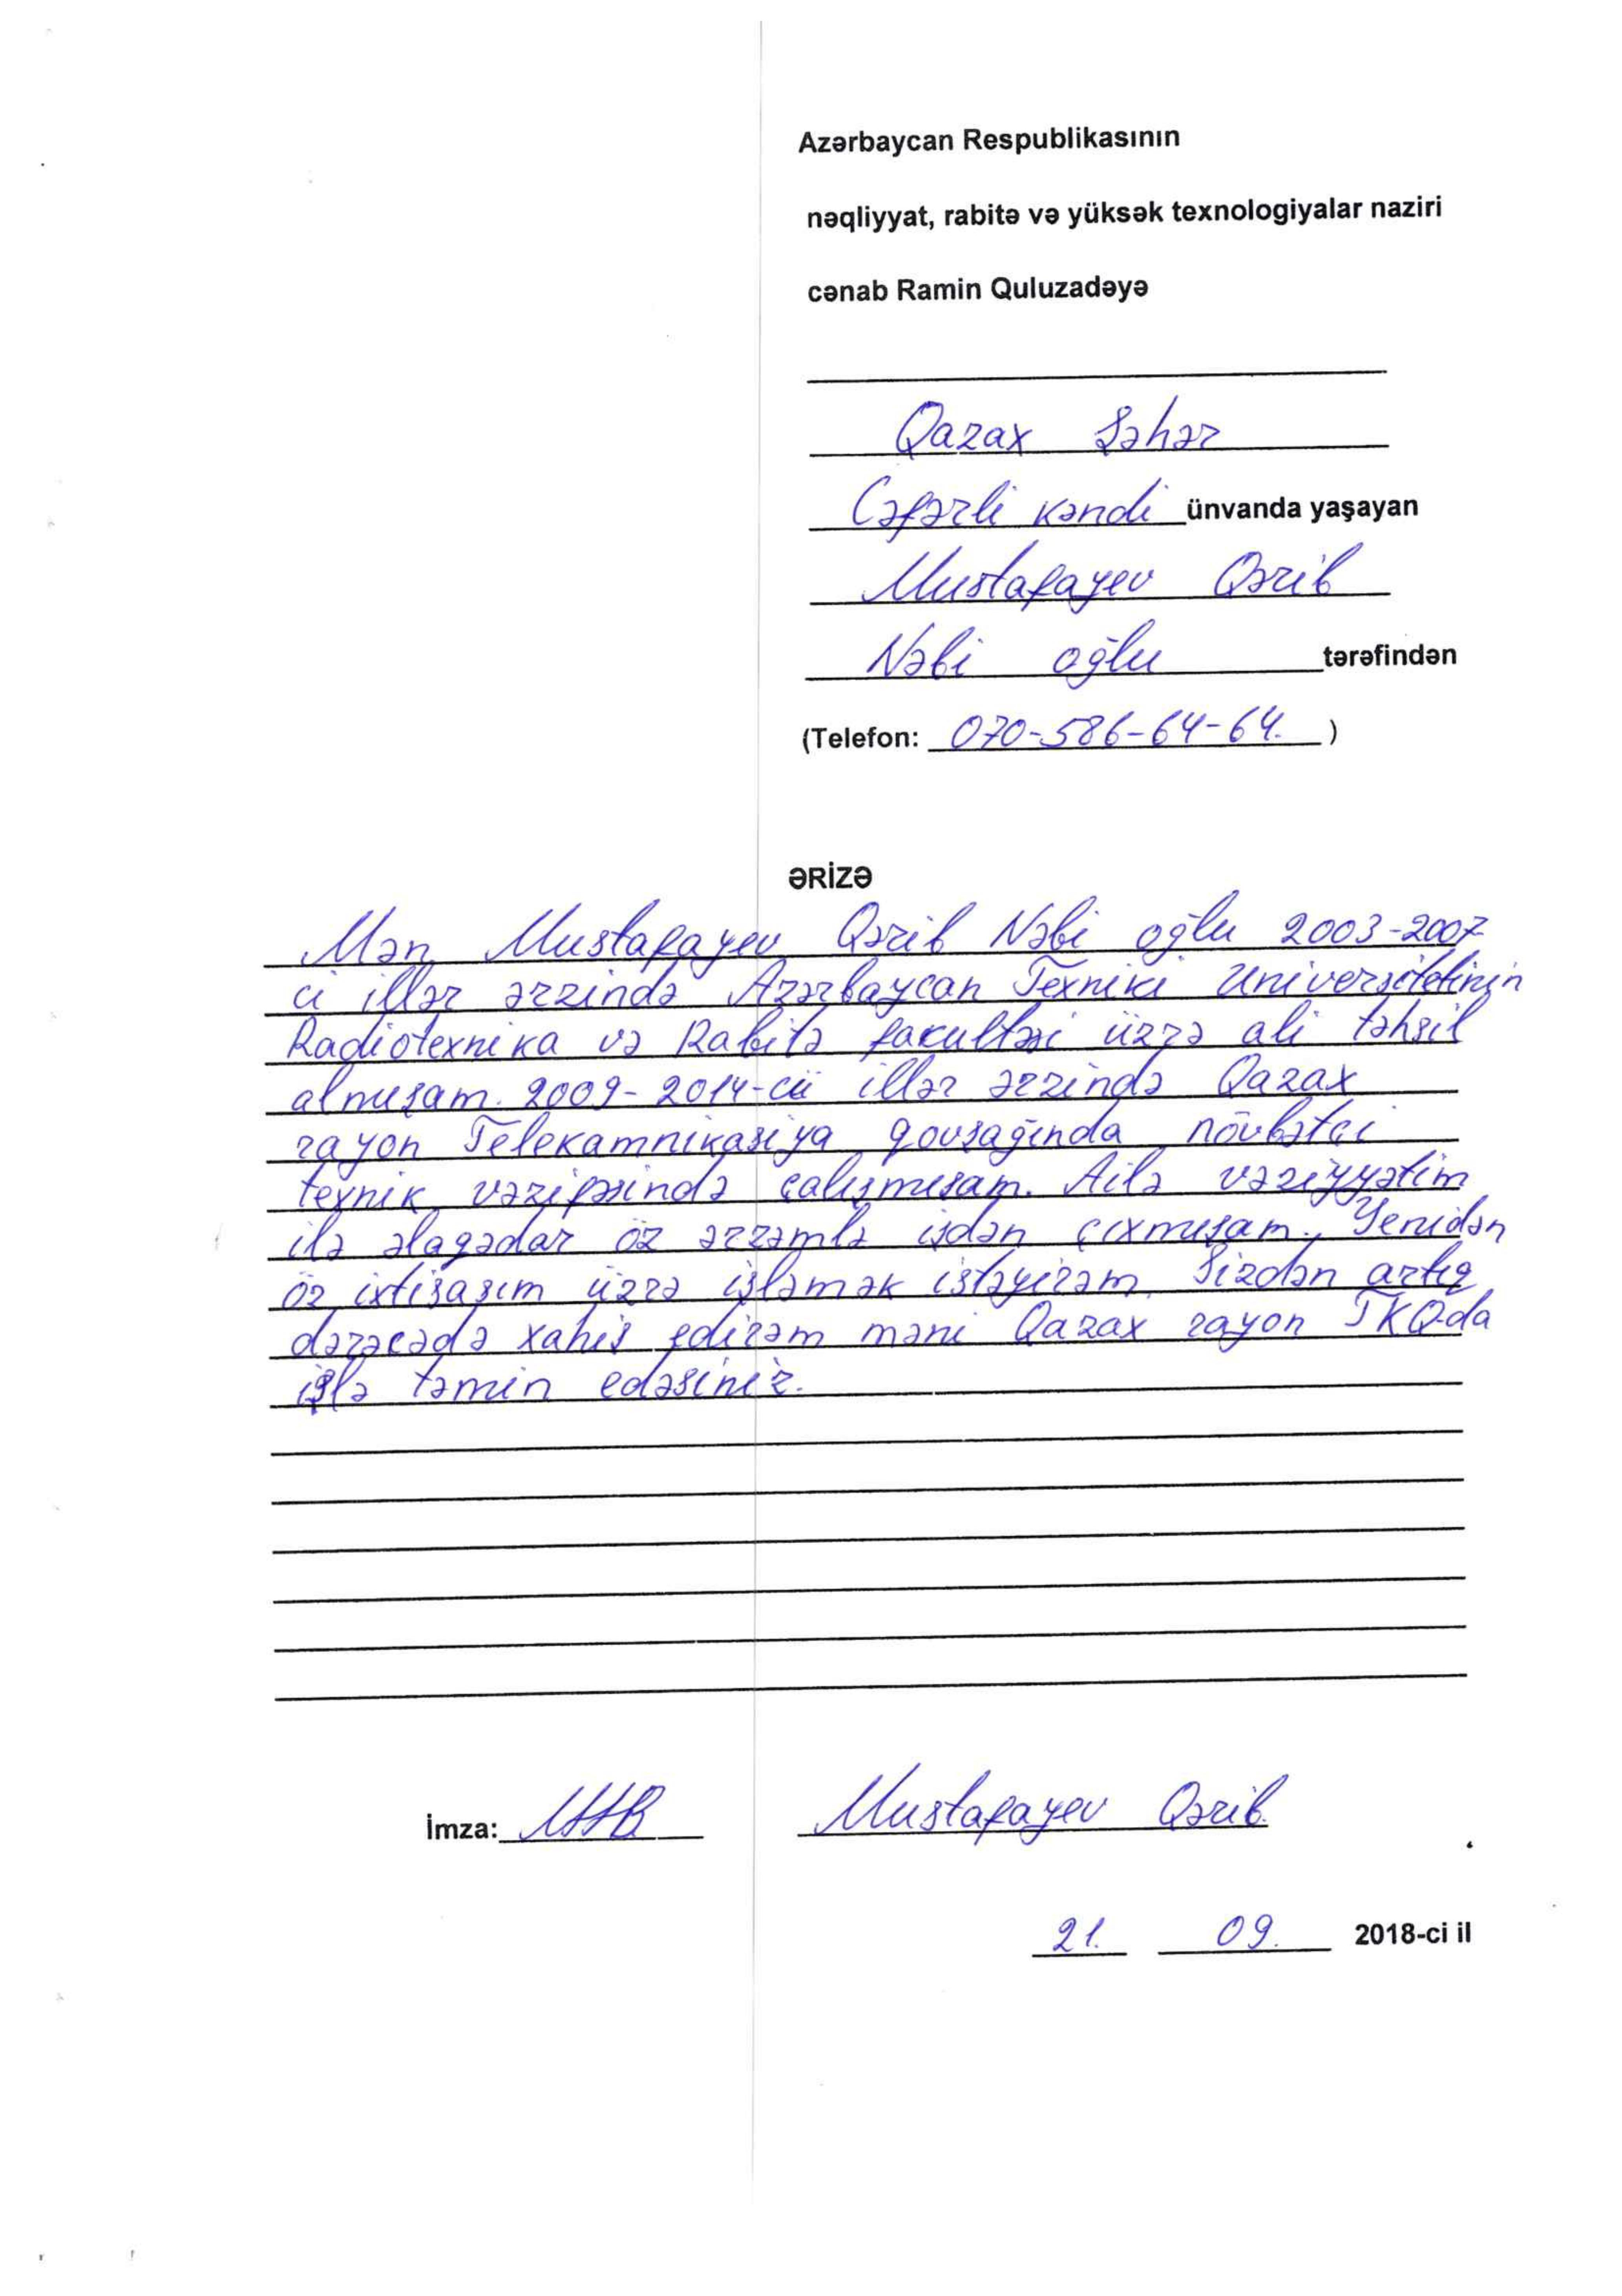 Azərbaycan Respublikasının
nəqliyyat, rabitə və yüksək texnologiyalar naziri
cənab Ramin Quluzadəyə
Qazax Şəhər
Cəfərli kəndi ünvanda yaşayan
Mustafayev Qərib
Nəbi oğlu tərəfindən
(Telefon: 070-586-64-64. )
ƏRİZƏ
Mən Mustafayev Qərib Nəbi oğlu 2003-2007
ci illər ərzində Azərbaycan Texniki Universitetinin
Radiotexnika və Rabitə fakultəsi üzrə ali təhsil
almışam. 2009-2014-cü illər ərzində Qazax
rayon Telekamnikasiya qovşağında növbətçi
texnik vəzifəsində çalışmışam. Ailə vəziyyətim
ilə əlaqədar öz ərzəmlə işdən çıxmışam. Yenidən
öz ixtisasım üzrə işləmək istəyirəm. Sizdən artıq
dərəcədə xahiş edirəm məni Qazax rayon TKQ-da
işlə təmin edəsiniz.
İmza: Mustafayev Qərib.
21. 09. 2018-ci il